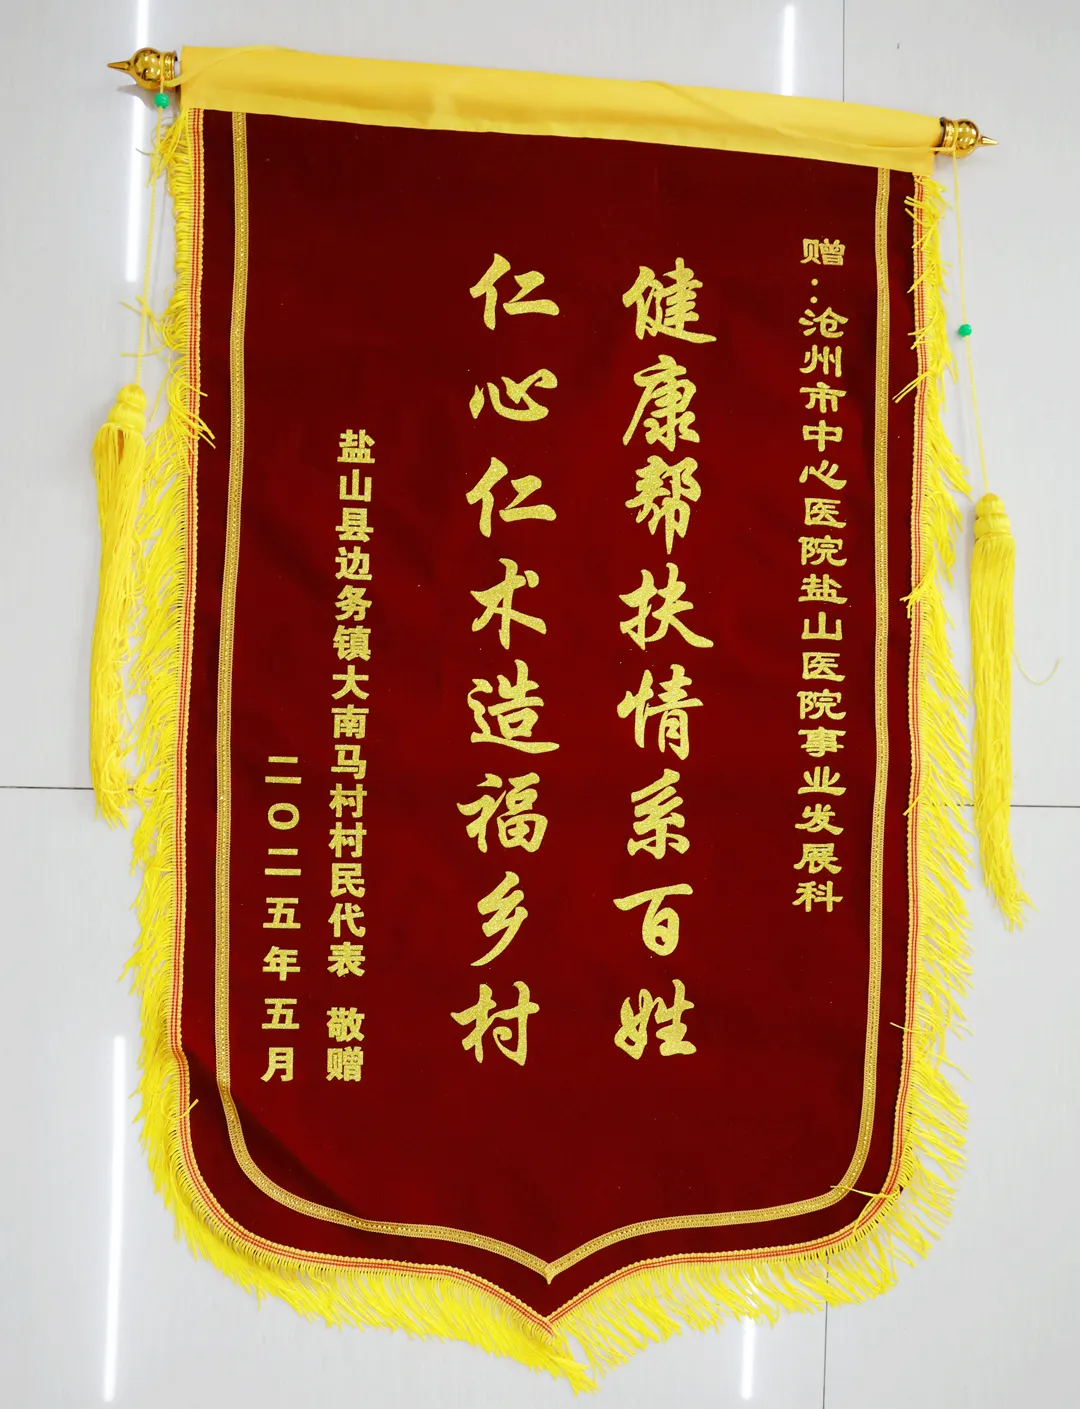 赠：沧州市中心医院盐山医院事业发展科
健康帮扶情系百姓
仁心仁术造福乡村
盐山县边务镇大南马村村民代表 敬赠
二〇二五年五月